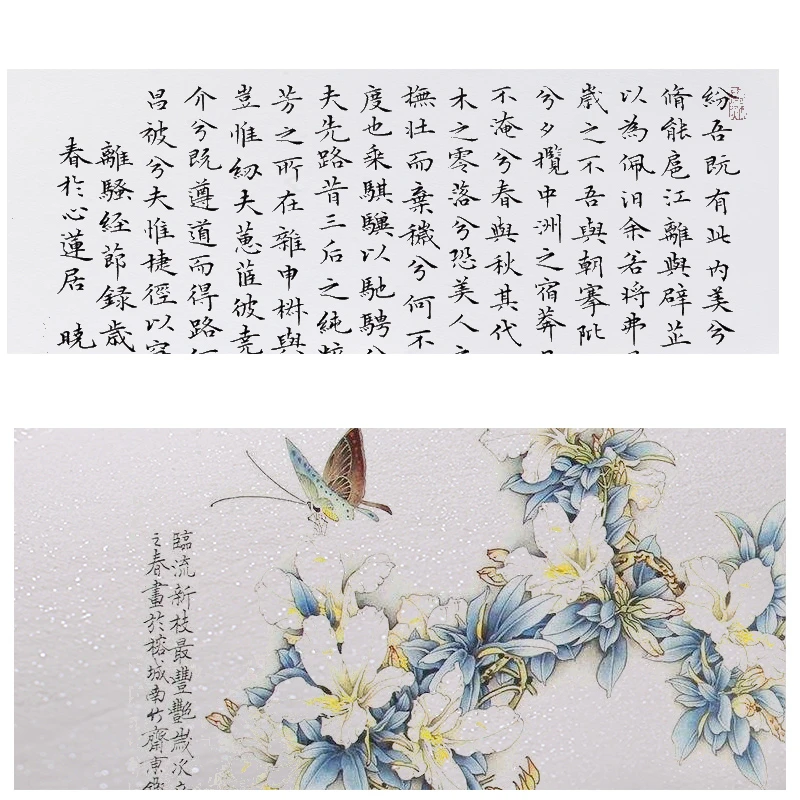 紛吾既有此內美兮
脩能扈江離與辟芷
以為佩汨余若將弗
歲之不吾與朝搴阰
兮夕攬中洲之宿莽
不淹兮春與秋其代
木之零落兮恐美人
撫壯而棄穢兮何不
度也乘騏驥以馳騁
夫先路昔三后之純
芳之所在雜申椒與
豈惟紉夫蕙茝彼堯
介兮既遵道而得路
昌被兮夫惟捷徑以
離騷経節録歲
春於心蓮居 曉
臨流新枝最豐艷歲次
之春畫於榕城南竹齋